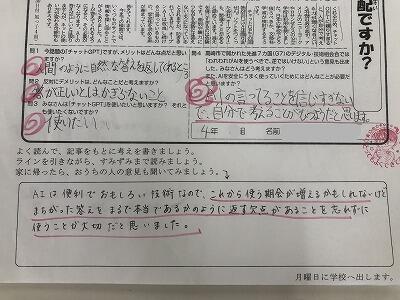 配ですか?
問1 今話題の「チャットGPT」ですが、メリットはどんな点だと思いますか?
間のように自然な答えを返してくれるところ
問2 反対にデメリットは、どんなことだと考えますか?
答えが正しいとはかぎらないこと
問3 みなさんは「チャットGPT」を使いたいと思いますか? それとも使いたくないですか?
使いたい
問4 高崎市で開かれた先進7カ国(G7)のデジタル・技術相会合では「われわれがAIを使うべきで、逆ではいけない」という意見も出ました。みなさんはどう考えますか?
また、AIを安全にうまく使っていくためにはどんなことが必要だと思いますか?
の言ってることを信じすぎないで、自分で考えることがひつようだと思います。
4年 組 名前
よく読んで、記事をもとに考えを書きましょう。
ラインを引きながら、すみずみまで読みましょう。
家に帰ったら、おうちの人の意見も聞いてみましょう。
AIは便利でおもしろい技術なので、これから使う機会が増えるかもしれないけど
まちがった答えをまるで本当であるかのように返す欠点があることを忘れずに
使うことが大切だと思いました。
月曜日に学校へ出します。